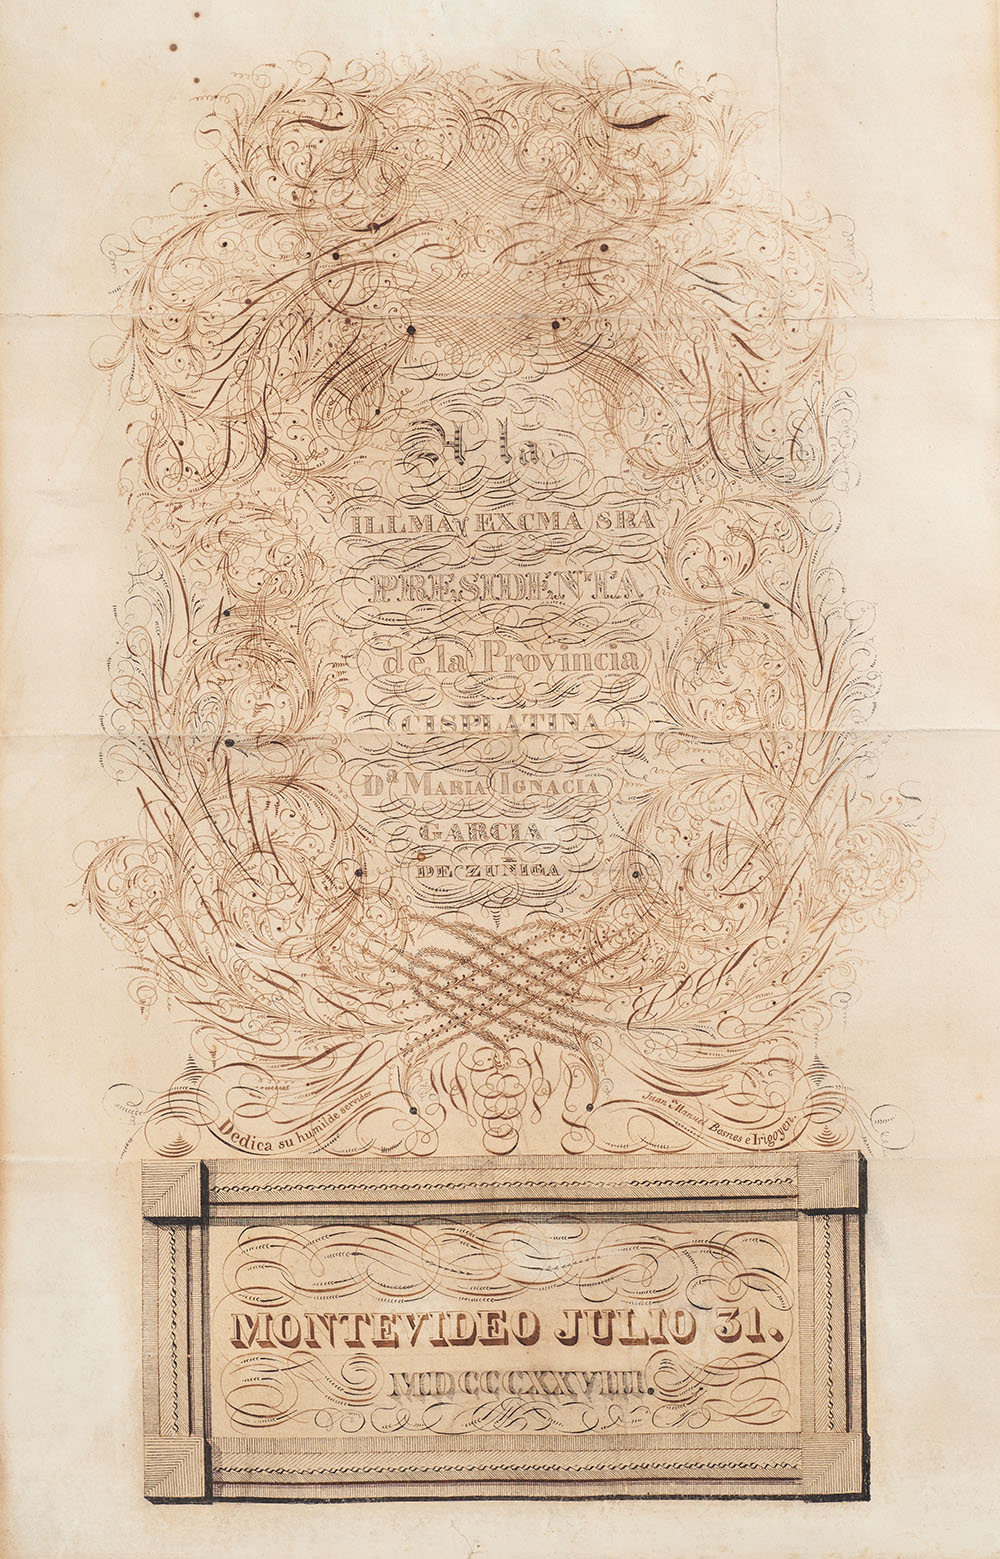 A la
ILLMA Y EXCMA SRA
PRESIDENTA
de la Provincia
CISPLATINA
Dª MARIA IGNACIA
GARCIA
DE ZUÑIGA
Dedica su humilde servidor
Juan Manuel Besnes e Irigoyen.
MONTEVIDEO JULIO 31.
MDCCCXXVIIII.